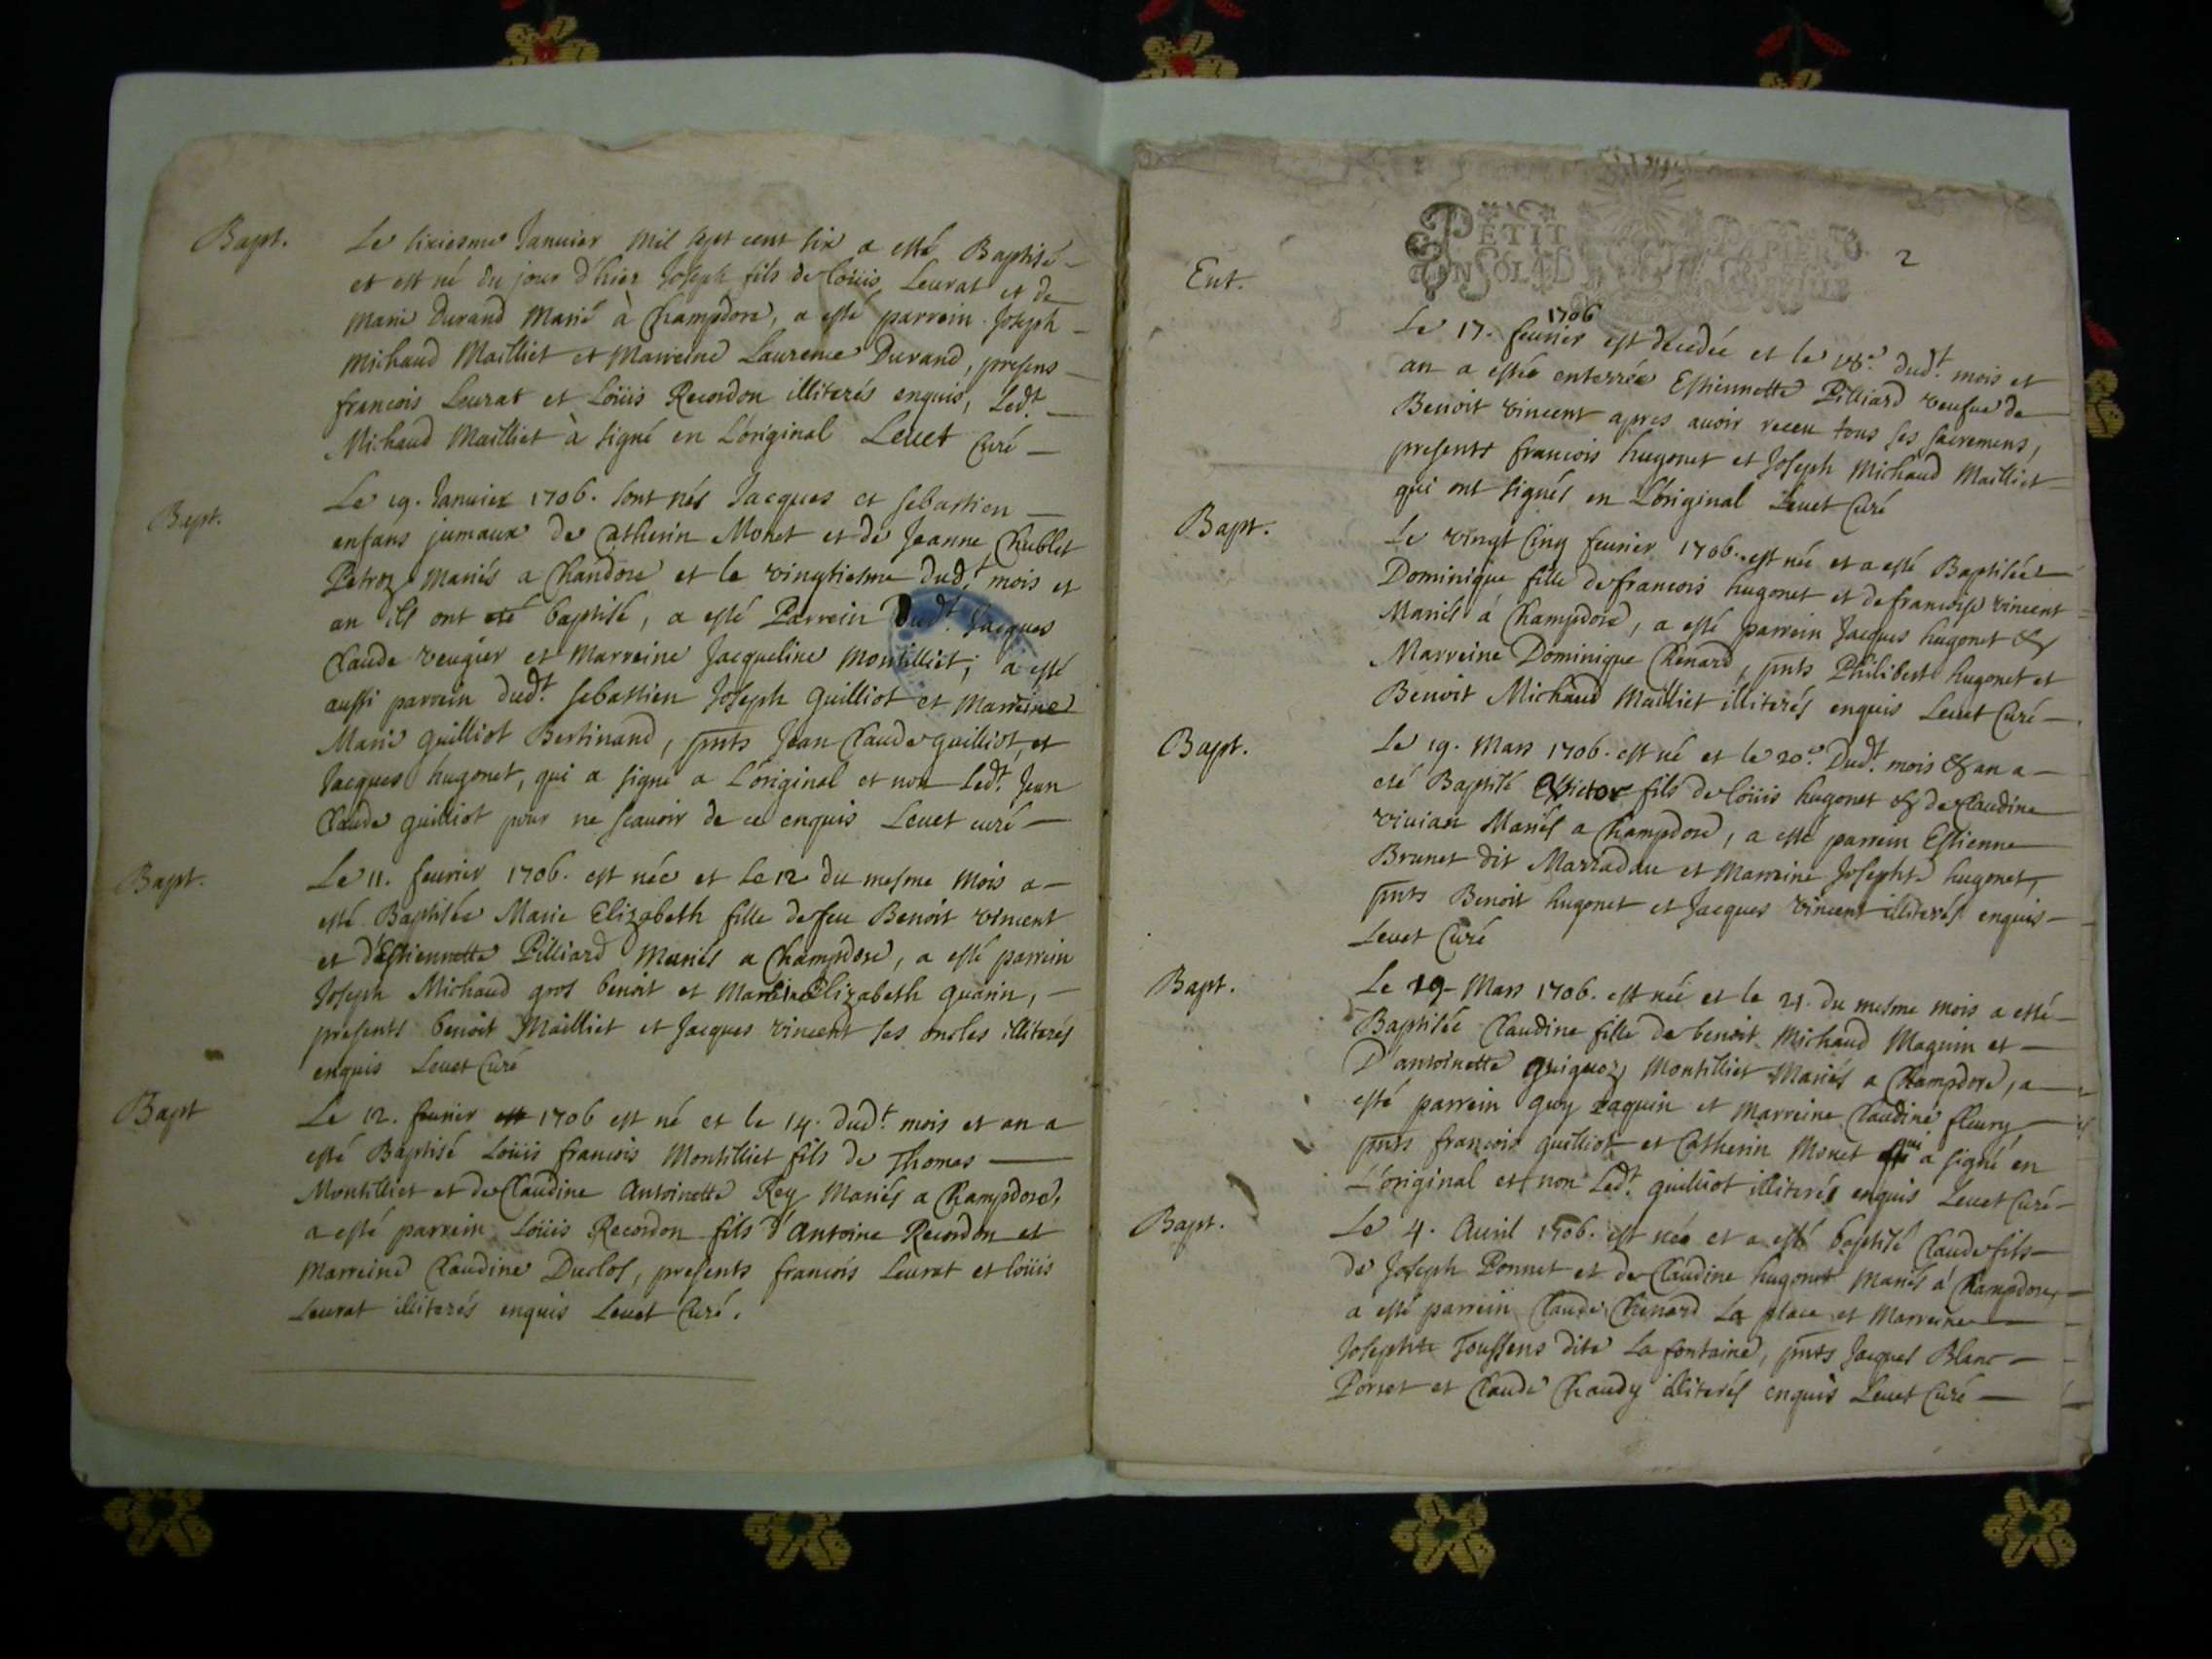 Bapt. Le sixiesme Januier mil sept cent six a esté Baptisé
et est né du jour d'hier Joseph fils de Loüis Leurat et de
Marie Durand Marié à Champdore, a esté parrein Joseph
Michaud Mailliet et Marreine Laurence Durand, presens
francois Leurat et Loüis Recordon illiterés enquis, Ledt.
Michaud Mailliet à signé en L'original Leuet Curé
Bapt. Le 19. Januier 1706. sont nés Jacques et sebastien
enfans jumaux de Catherin Monet et de Jeanne Chublet
Petroz Mariés a Chandore et le vingtiesme dudt. mois et
an ils ont eté baptisé, a esté Parrein Dudt. Jacques
Claude veugier et Marreine Jacqueline Montilliet; a esté
aussi parrein dudt. sebastien Joseph guilliot et Marreine
Marie guilliot Bertinand, pnts Jean Claude guilliot, et
Jacques hugonet, qui a signé a L'original et non Ledt. Jean
Claude guilliot pour ne scauoir de ce enquis Leuet curé
Bapt. Le 11. feurier 1706. est née et Le 12 du mesme mois a
esté Baptisée Marie Elizabeth fille de feu Benoit vincent
et d'Estiennette Pilliard Mariés a Champdore, a esté parrein
Joseph Michaud gros benoit et Marreine Elizabeth guarin,
presents benoit Mailliet et Jacques vincent ses oncles illiterés
enquis Leuet Curé
Bapt Le 12. feurier est 1706 est né et le 14. dudt. mois et an a
esté Baptisé Loüis francois Montilliet fils de Thomas
Montilliet et de Claudine Antoinette Rey Mariés a Champdore,
a esté parrein Loüis Recordon fils d'Antoine Recordon et
Marreine Claudine Duclos, presents francois Leurat et loüis
Leurat illiterés enquis Leuet Curé.
PETIT PAPIER
UN SOL
2
Ent. 1706
Le 17. feurier est decedée et le 18e. dudt. mois et
an a estée enterrée Estiennette Pilliard veufue de
Benoit vincent apres auoir receu tous ses sacremens,
presents francois hugonet et Joseph Michaud Mailliet
qui ont signés en L'original Leuet Curé
Bapt. Le vingt cinq feurier 1706. est née et a esté Baptisée
Dominique fille de francois hugonet et de francoise vincent
Mariés à Champdore, a esté parrein Jacques hugonet &
Marreine Dominique Chenard, pnts Philibert hugonet et
Benoit Michaud Mailliet illiterés enquis Leuet Curé
Bapt. Le 19. Mars 1706. est né et le 20e. Dudt. mois & an a
eté Baptisé Victor fils de loüis hugonet & de Claudine
viuian Mariés a Champdore, a esté parrein Estienne
Brunet dit Marradau et Marreine Josephte hugonet,
pnts Benoit hugonet et Jacques vincent illiterés enquis
Leuet Curé
Bapt. Le 19 Mars 1706. est née et le 21. du mesme mois a esté
Baptisée Claudine fille de benoit Michaud Maguin et
D'antoinette guiguoz Montilliet Mariés a Champdore, a
esté parrein guy raquin et Marreine Claudine fleury
pnts francois guilliot et Catherin Monet qui a signé en
L'original et non Ledt. guilliot illiterés enquis Leuet Curé
Bapt. Le 4. Auril 1706. est née et a esté baptisé Claude fils
de Joseph Ponnet et de Claudine hugonet Mariés à Champdore,
a esté parrein Claude Chenard La place et Marreine
Josephte Toussens dite La fontaine, pnts Jacques Blanc
Porset et Claude Chaudy illiterés enquis Leuet Curé